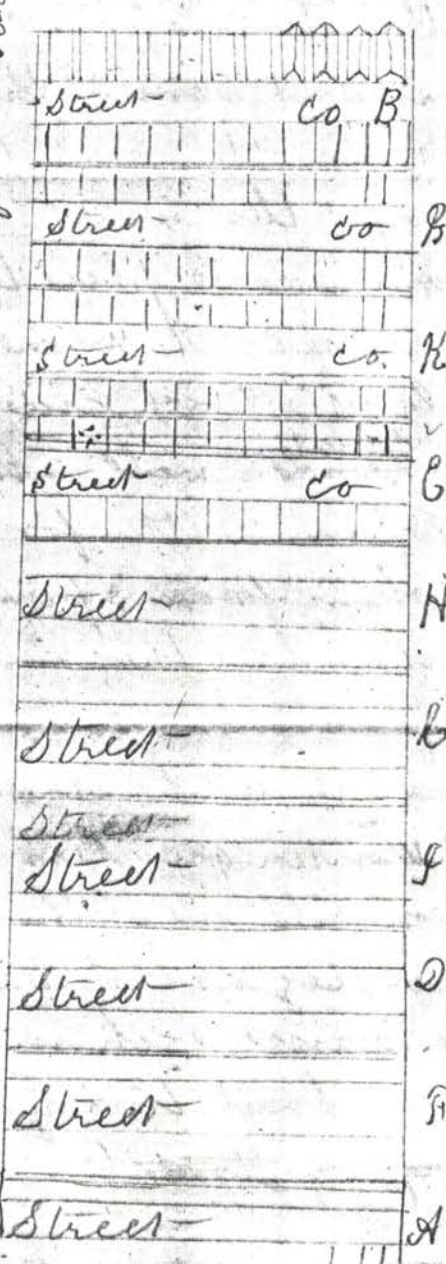 Street Co B
Street Co G
Street Co. K
Street Co E
Street H
Street C
Street
Street I
Street D
Street F
Street A